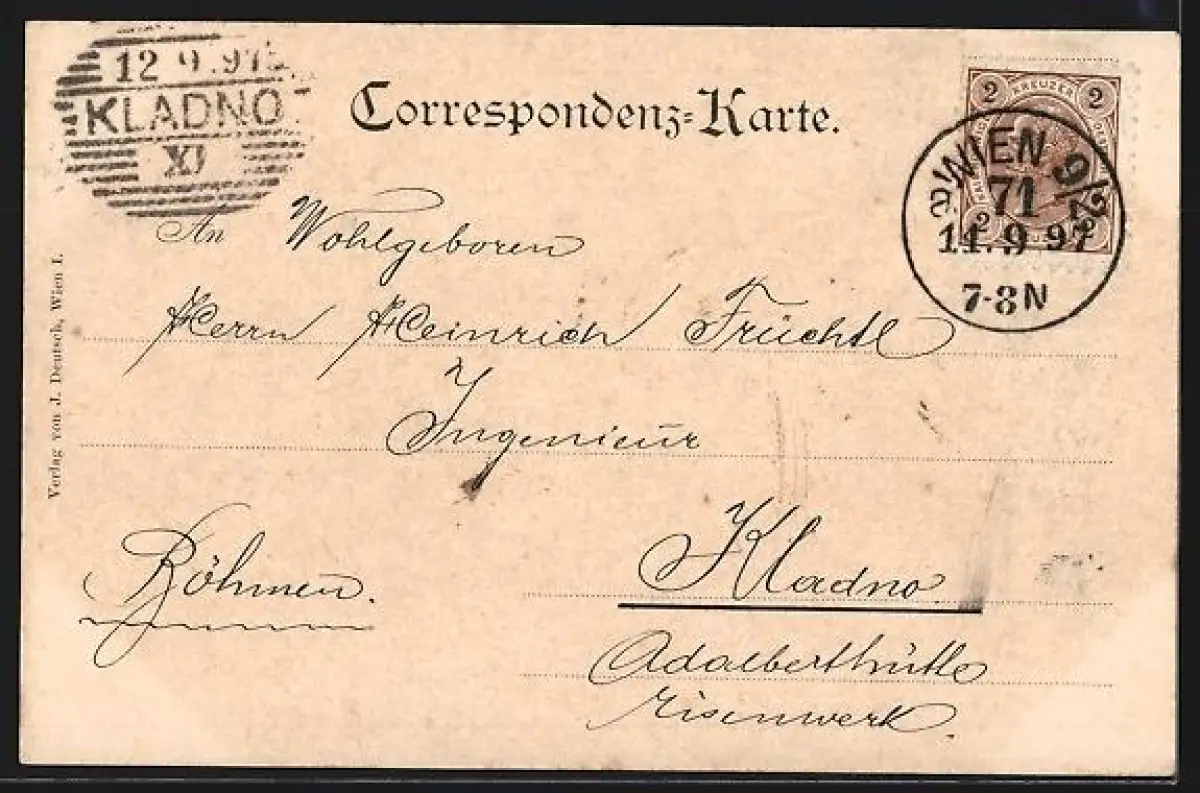 12 9.97
KLADNO
XI
Correspondenz=Karte.
2 KREUZER 2
2
WIEN 9/2
71
11.9 97
7-8N
An Wohlgeboren
Herrn Heinrich Früchtl
Ingenieur
Böhmen.
Kladno.
Adalberthütte
Eisenwerk
Verlag von J. Deutsch, Wien I.